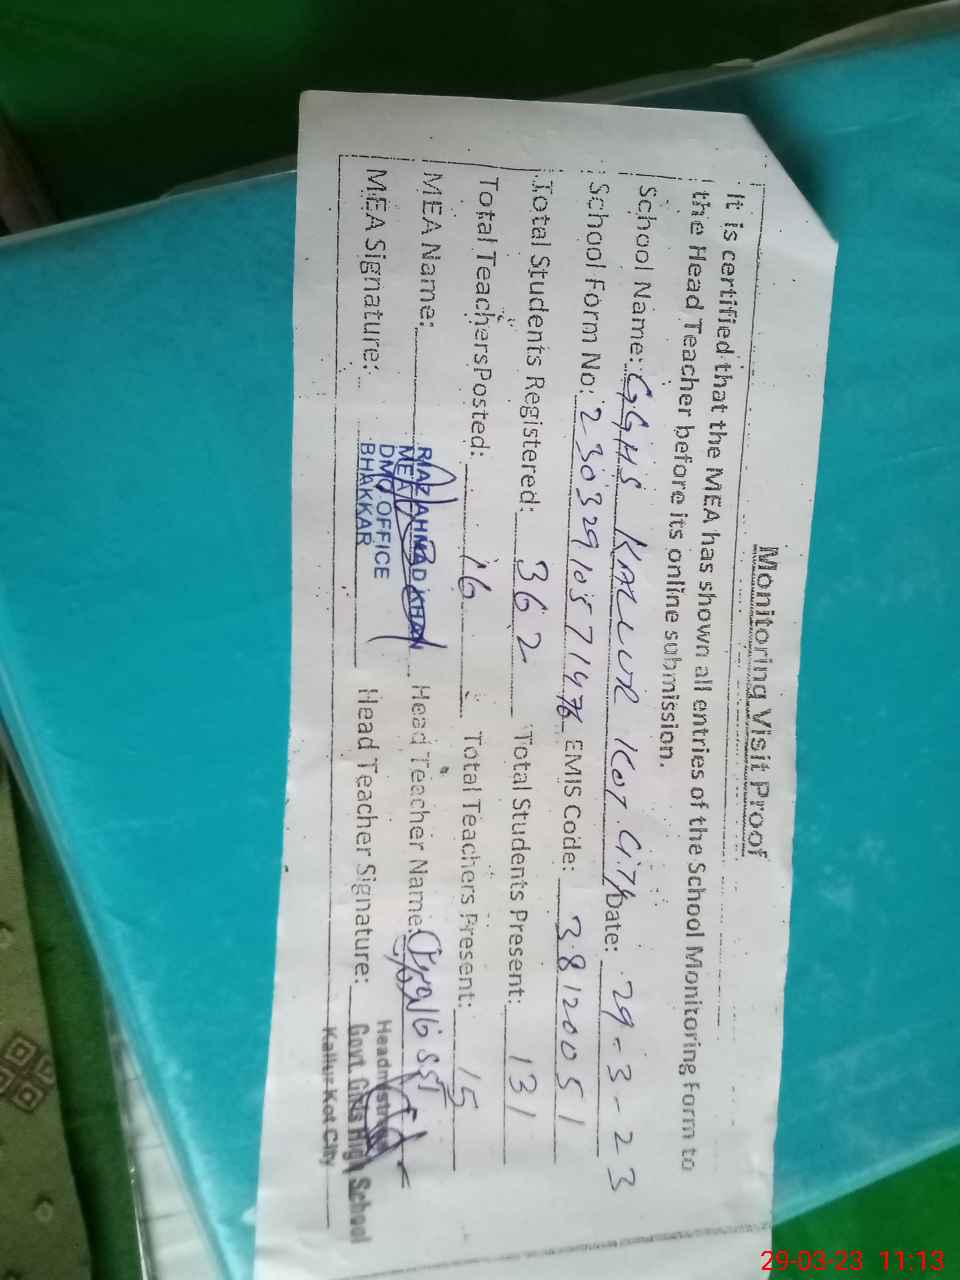 Monitoring Visit Proof
It is certified that the MEA has shown all entries of the School Monitoring Form to
the Head Teacher before its online submission.
School Name: GGHS KALLUR KOT CITY Date: 29-3-23
School Form No: 23032910571476 EMIS Code: 38120051
Total Students Registered: 362 Total Students Present: 131
Total Teachers Posted: 16 Total Teachers Present: 15
MEA Name: Head Teacher Name: SST
MEA Signature: Head Teacher Signature:
RIAZ AHMAD KHAN
MEA
DMO OFFICE
BHAKKAR
Headmistress
Govt. Girls High School
Kallur Kot City
29-03-23 11:13